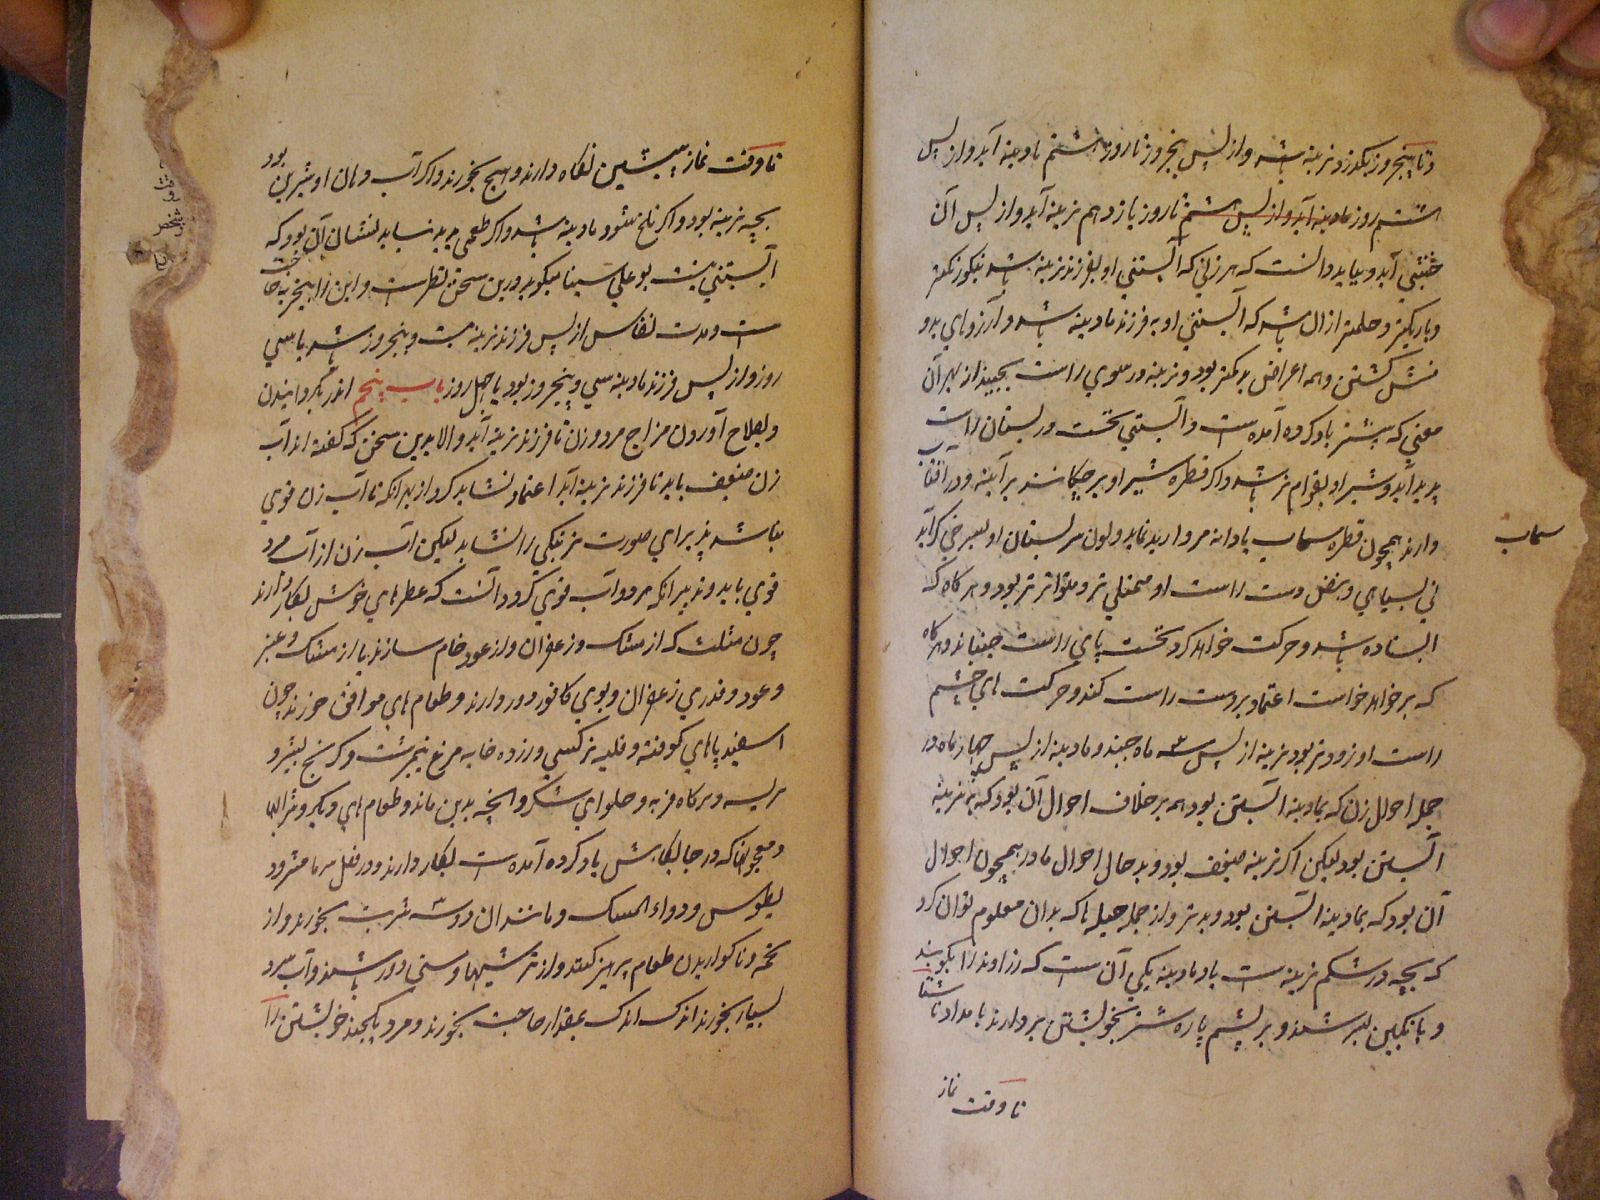 و تا پنج روز بگذرد نرینه باشد و از پس پنج روز تا روز هشتم مادینه آید و از پس
هشتم روز مادینه آید و از پس هشتم تا روز یازدهم نرینه آید و از پس آن
خنثی آید و بباید دانست که هر زنی که آبستنی او بفرزند نرینه باشد نیکو رنگتر
و باریکتر و حلمتر ازان باشد که آبستنی او به فرزند مادینه باشد و آرزوهای بد و
منش گشتن و همه اعراض بد کمتر بود و نرینه در سوی راست بجنبد از بهر آن
معنی که بیشتر یاد کرده آمده است و آبستنی نخست در پستان راست
پدید آید و شیر او بقوام تر باشد و اگر قطره شیر او بر چکانند بر آینه و در آفتاب
دارند همچون قطره سیماب یا دانه مروارید نماید و لون سر پستان او بسرخی گراید
سیماب
نی بسیاهی و نبض دست راست او ممتلی تر و متواتر تر بود و هرگاه که
ایستاده باشد و حرکت خواهد کرد نخست پای راست جنباند و هرگاه
که بر خواهد خواست اعتماد بر دست راست کند و حرکت های چشم
راست او زودتر بود نرینه از پس سه ماه جنبد و مادینه از پس چهار ماه و در
جمله احوال زن که بمادینه آبستن بود همه بر خلاف احوال آن بود که به نرینه
آبستن بود لیکن اگر نرینه ضعیف بود و بد حال احوال مادر همچون احوال
آن بود که بمادینه آبستن بود و بدتر و از جمله حیله ها که بدان معلوم توان کرد
که بچه در شکم نرینه است یا مادینه یکی آن است که زراوند را بکوبند
و بانگبین بسرشند و بر پشم پاره شتر بخویشتن بردارند بامداد ناشتا
تا وقت نماز
تا وقت نماز پیشین نگاه دارند و هیچ نخورند و اگر آب دهان او شیرین بود
بچه نرینه بود و اگر تلخ شود مادینه باشد و اگر طعمی پدید نیاید نشان آن بود که
آبستنی نیست بوعلی سینا میگوید درین سخن نظر است و این را تجربه خاست
ست و مدت نفاس از پس فرزند نرینه بیست و پنج روز باشد یا سی
روز و از پس فرزند مادینه سی و پنج روز بود یا چهل روز باب پنجم اندر بگردانیدن
و بصلاح آوردن مزاج مرد و زن تا فرزند نرینه آید والا بدین سخن که گفته اند آب
زن ضعیف باید تا فرزند نرینه آید اعتماد نشاید کرد از بهر انکه تا آب زن قوی
نباشد پذیرای صورت نرینگی را نشاید لیکن آب زن از آب مرد
قوی باید و تدبیر انکه مرد و آب قوی گردد آنست که عطرهای خوش بکار دارند
چون مثلث که از مشک و زعفران و از عود خام سازند یا از مشک و عنبر
و عود و قدری زعفران و بوی کافور دور دارند و طعام های موافق خورند چون
اسفیدباهای کوفته و قلیه نرگسی و زرده خایه مرغ نیم برشت و کرنج بشیر و
هریسه و بره گاه فربه و حلوای شکر و انچه بدین ماند و طعام های دیگر و شرابها
و معجونها که در جایگاهش یاد کرده آمده است بکار دارند و در فصل سرما مثرود
یطوس و دواء المسک و مانند ان دو سه شربت بخورند و از
تخمه و ناگواریدن طعام پرهیز کنند و از ترشیها و مستی دور باشند و آب سرد
بسیار نخورند اندک اندک بمقدار حاجت بخورند و مرد بگنجد خویشتن را